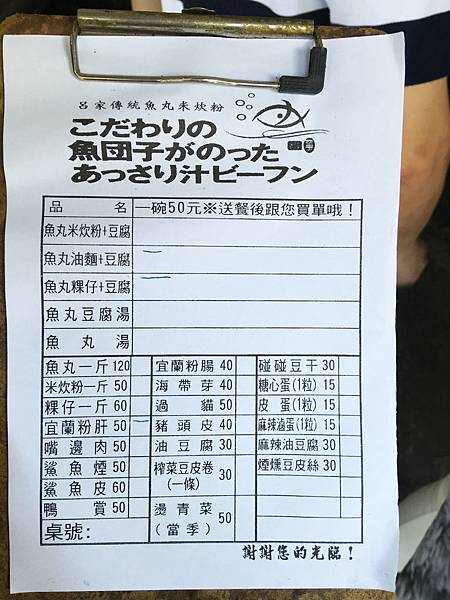 呂家傳統魚丸米炊粉
こだわりの
魚団子がのった
あっさり汁ビーフン
品名 一碗50元※送餐後跟您買單哦！
魚丸米炊粉+豆腐
魚丸油麵+豆腐
魚丸粿仔+豆腐
魚丸豆腐湯
魚丸湯
魚丸一斤120 宜蘭粉腸40 碰碰豆干30
米炊粉一斤50 海帶芽40 糖心蛋(1粒)15
粿仔一斤60 過貓50 皮蛋(1粒)15
宜蘭粉肝50 豬頭皮40 麻辣滷蛋(1粒)15
嘴邊肉50 油豆腐30 麻辣油豆腐30
鯊魚煙50 榨菜豆皮卷(一條)30 煙燻豆皮絲30
鯊魚皮60
鴨賞50 燙青菜(當季)50
桌號:
謝謝您的光臨！